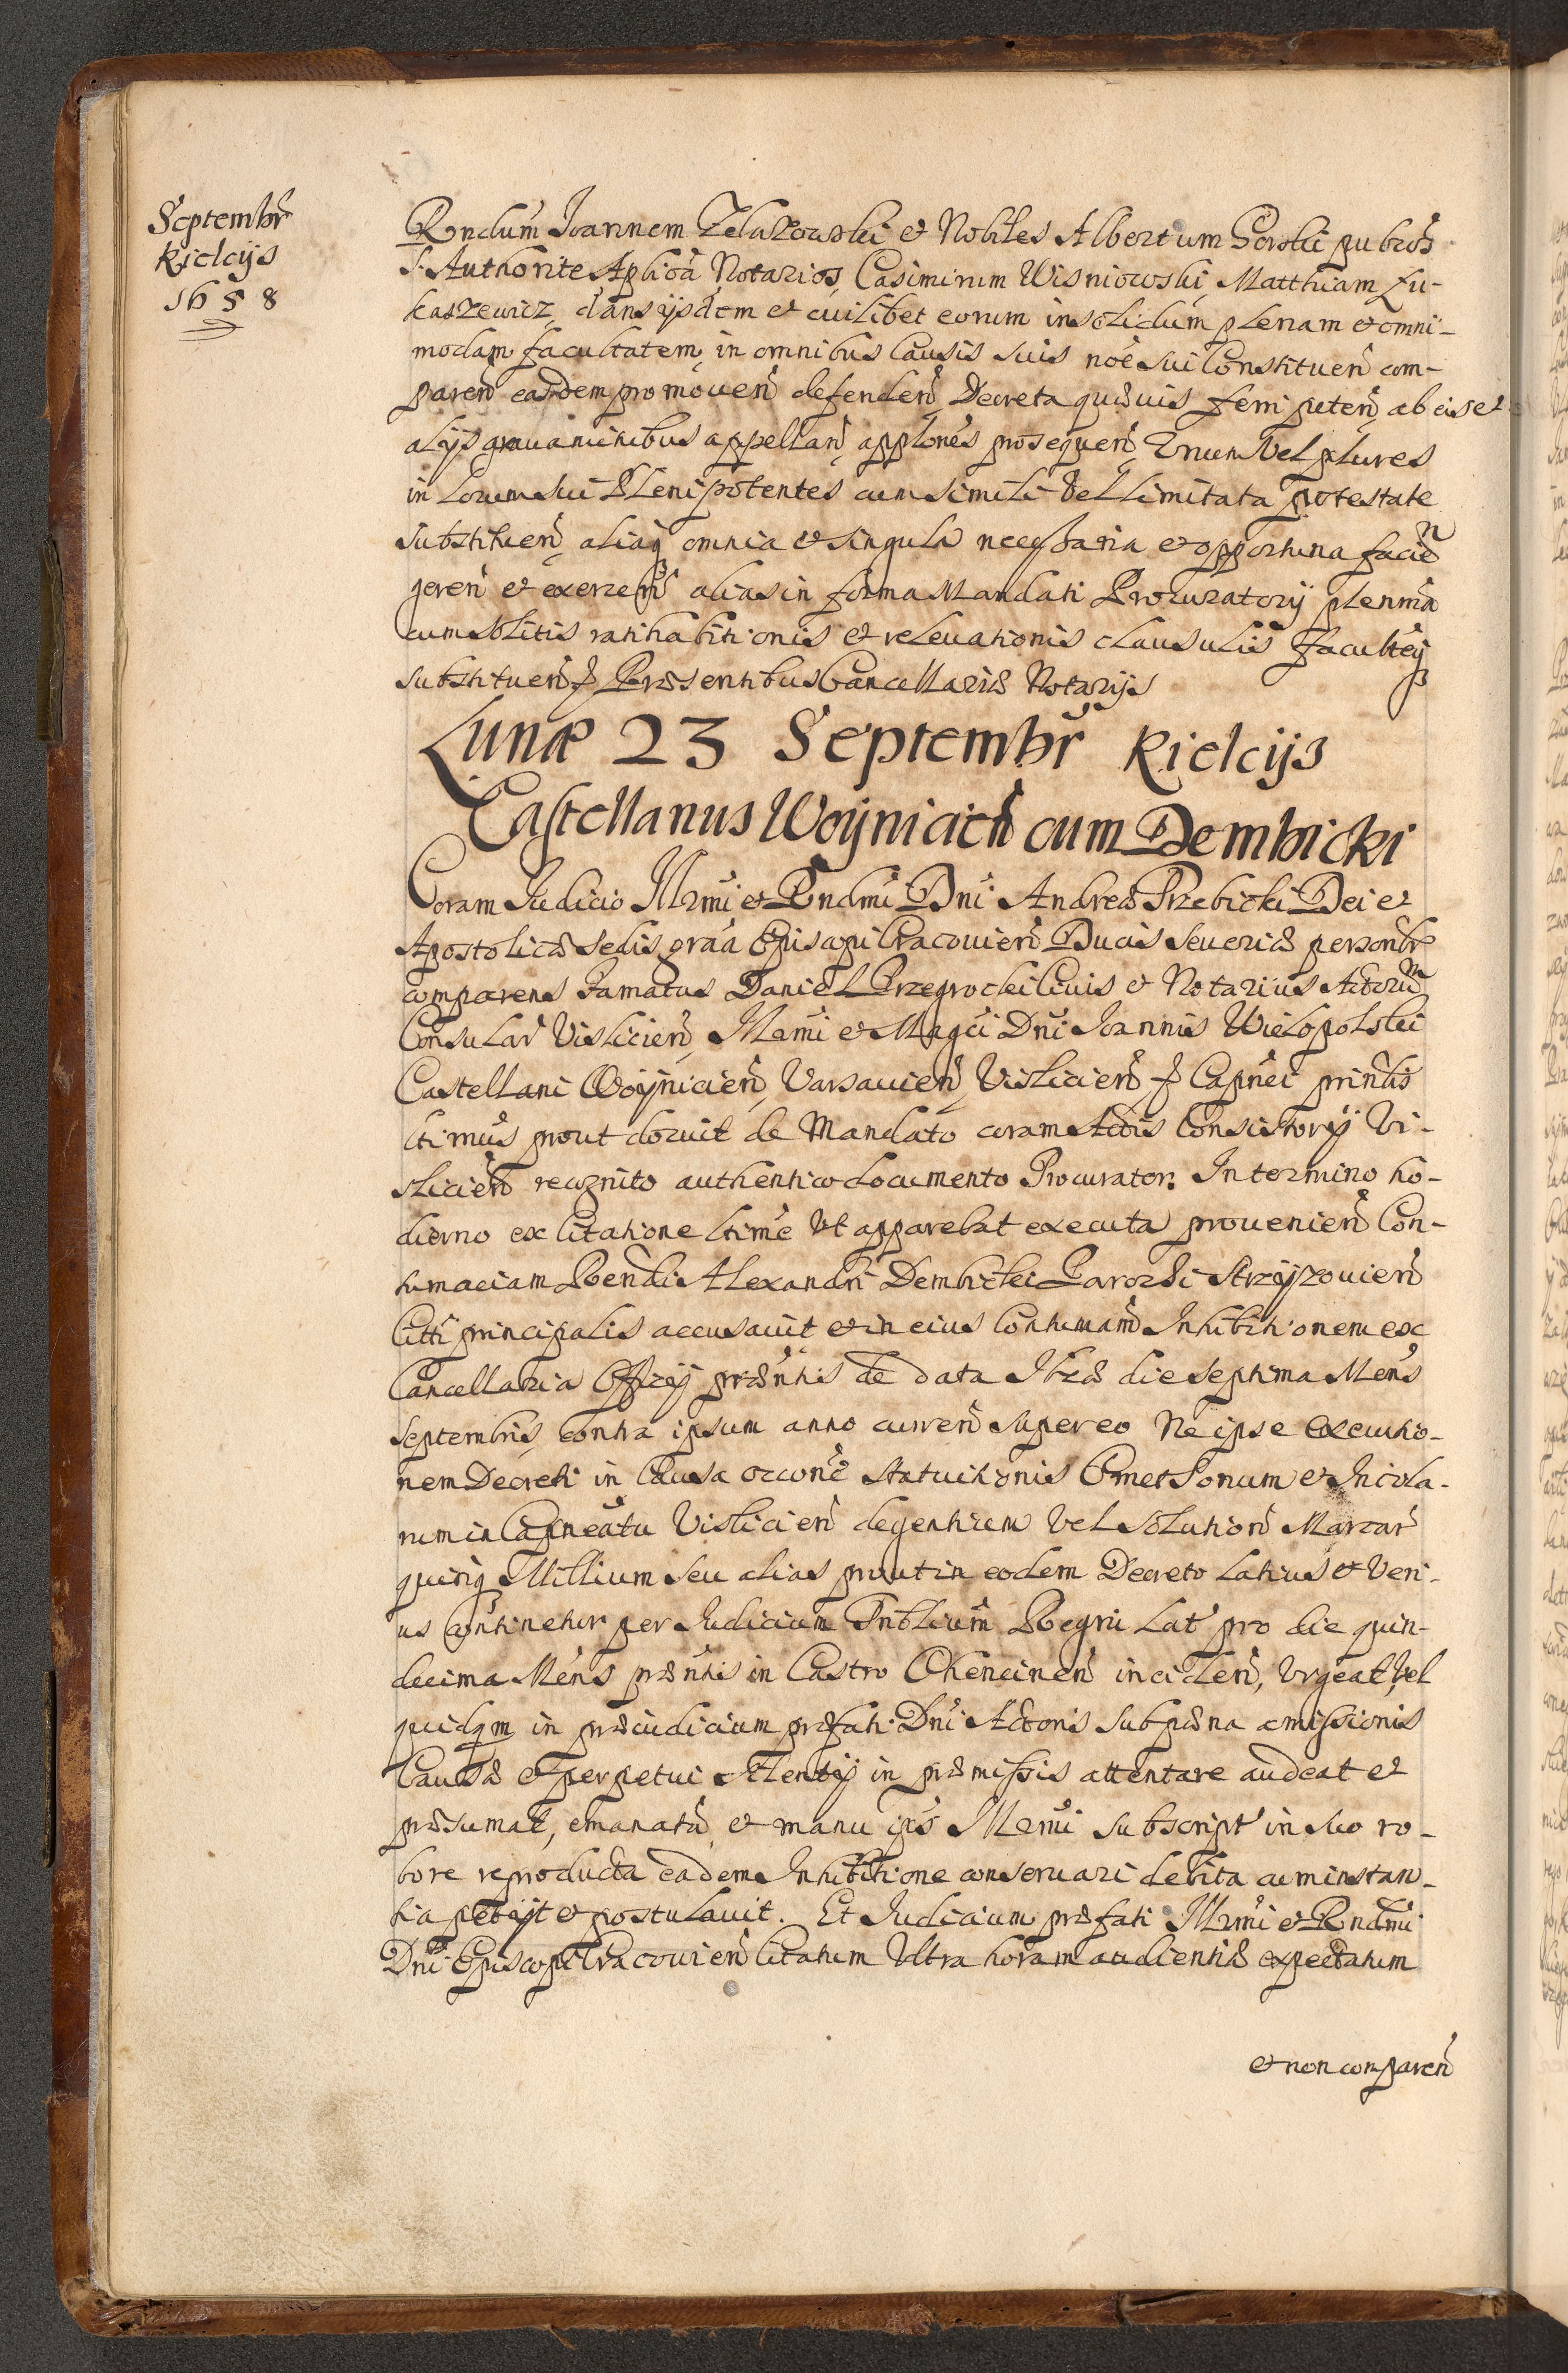 Septembr
Kielcijs
1658
Rndum Joannem Zelazowski et Nobiles Albertum Gorski pubcos
S. Authorite Aplica Notarios, Casimirum Wisniowski, Matthiam Lu-
kaszewicz, dans ijsdem et cuilibet eorum insolidum plenam et omni-
modam facultatem, in omnibus Causis suis noe sui Constituen com-
paren easdem promouen defenden Decreta quævis ferri peten, ab eis et
alijs grauaminibus appellan, applones prosequen, Vnum vel plures
in locum sui Plenipotentes cum simili vel limitata potestate
substituen, aliaq omnia et singula necessaria et opportuna facien
geren et exercen alias in forma Mandati Procuratorij plenma
cum solitis ratihabitionis et releuationis clausulis facultq
substituen Præsentibus Cancellariæ Notarijs
Lunæ 23 Septembr Kielcijs
Castellanus Woyniicien cum Dembicki
Coram Judicio Illrmi et Rndmi Dni Andreæ Trzebicki Dei et
Apostolicæ Sedis graa Episcopi Cracouien Ducis Seueriæ personlr
comparens Famatus Daniel Przegrocki Ciuis et Notarius Actorum
Consular Vislicien, Illrmi et Magci Dni Joannis Wielopolski
Castellani Woynicien, Varsauien, Vislicien Capnei prinlis
ltimus prout docuit de Mandato coram Actis Consistorij Vi-
slicien recognito authentico documento Procurator. In termino ho-
dierno ex Citatione ltime Vt apparebat executa prouenien Con-
tumaciam Rendi Alexandri Dembicki Parochi Strzyzouien
Citti principalis accusauit et in eius Contumam Inhibitionem ex
Cancellaria Officij præntis de data Ibid die septima Mens
Septembris contra ipsum anno curren super eo Ne ipse executio-
nem Decreti in Causa occone statuitionis Cmetonum et Incola-
rum in Capneatu Vislicien degentium Vel Solution Marcar
quinq Millium seu alias prout in eodem Decreto latius et Veri-
us Continetur per Judicium Tribtium Regni Lat pro die quin-
decima Mens præntis in Castro Chencinen inciden, Vrgeat, vel
quidqm in præiudicium præfati Dni Actoris sub pæna amissionis
Causæ et perpetui silentij in præmissis attentare audeat et
præsumat, emanata et manu ipsius Illrmi subscript in suo ro-
bore reproducta eadem Inhibitione conseruari debita cum instan-
tia petijt et postulauit. Et Judicium præfati Illrmi et Rndmi
Dni Episcopi Cracouien Citatum Vltra horam audientiæ expectatum
et non comparen